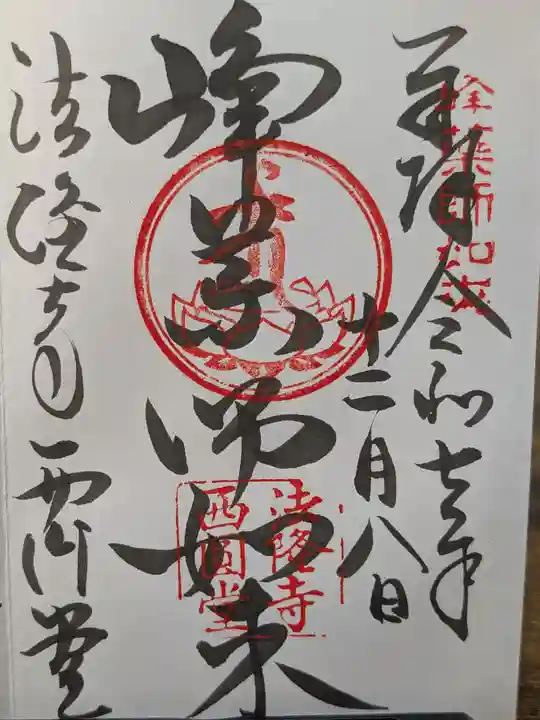 奉拝 令和七年
十二月八日
峰薬師如来
法隆寺西円堂
峰薬師如来
法隆寺
西圓堂